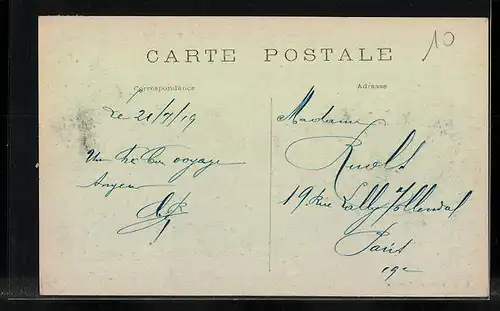 CARTE POSTALE
10
Correspondance
Le 21/7/19
Un voyage
Adresse
Madame
19 Rue Lally Tollendal
Paris
19e